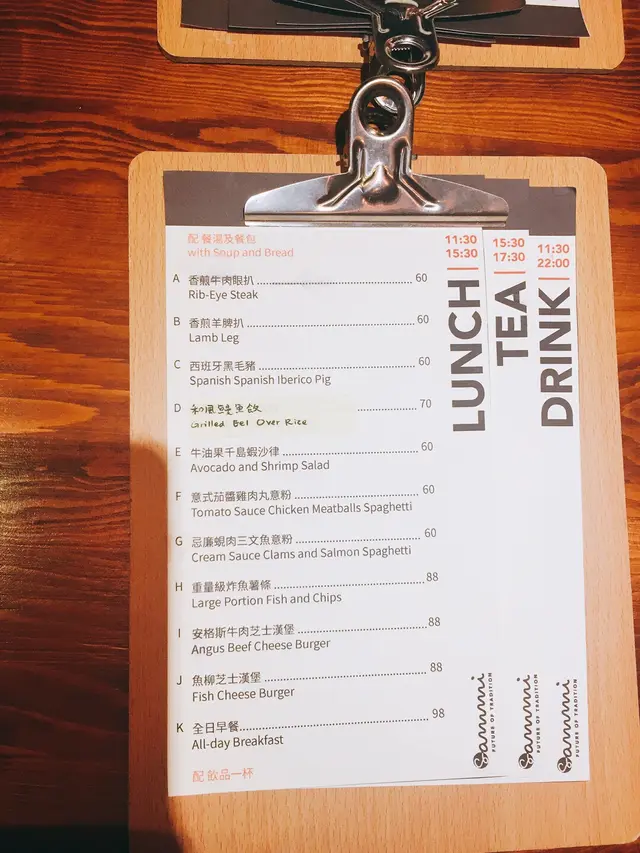 配 餐湯及餐包
with Soup and Bread
A 香煎牛肉眼扒 60
Rib-Eye Steak
B 香煎羊脾扒 60
Lamb Leg
C 西班牙黑毛豬 60
Spanish Spanish Iberico Pig
D 和風鰻魚飯 70
Grilled Eel Over Rice
E 牛油果千島蝦沙律 60
Avocado and Shrimp Salad
F 意式茄醬雞肉丸意粉 60
Tomato Sauce Chicken Meatballs Spaghetti
G 忌廉蜆肉三文魚意粉 60
Cream Sauce Clams and Salmon Spaghetti
H 重量級炸魚薯條 88
Large Portion Fish and Chips
I 安格斯牛肉芝士漢堡 88
Angus Beef Cheese Burger
J 魚柳芝士漢堡 88
Fish Cheese Burger
K 全日早餐 98
All-day Breakfast
配 飲品一杯
11:30
15:30
LUNCH
Sammi
FUTURE OF TRADITION
15:30
17:30
TEA
Sammi
FUTURE OF TRADITION
11:30
22:00
DRINK
Sammi
FUTURE OF TRADITION